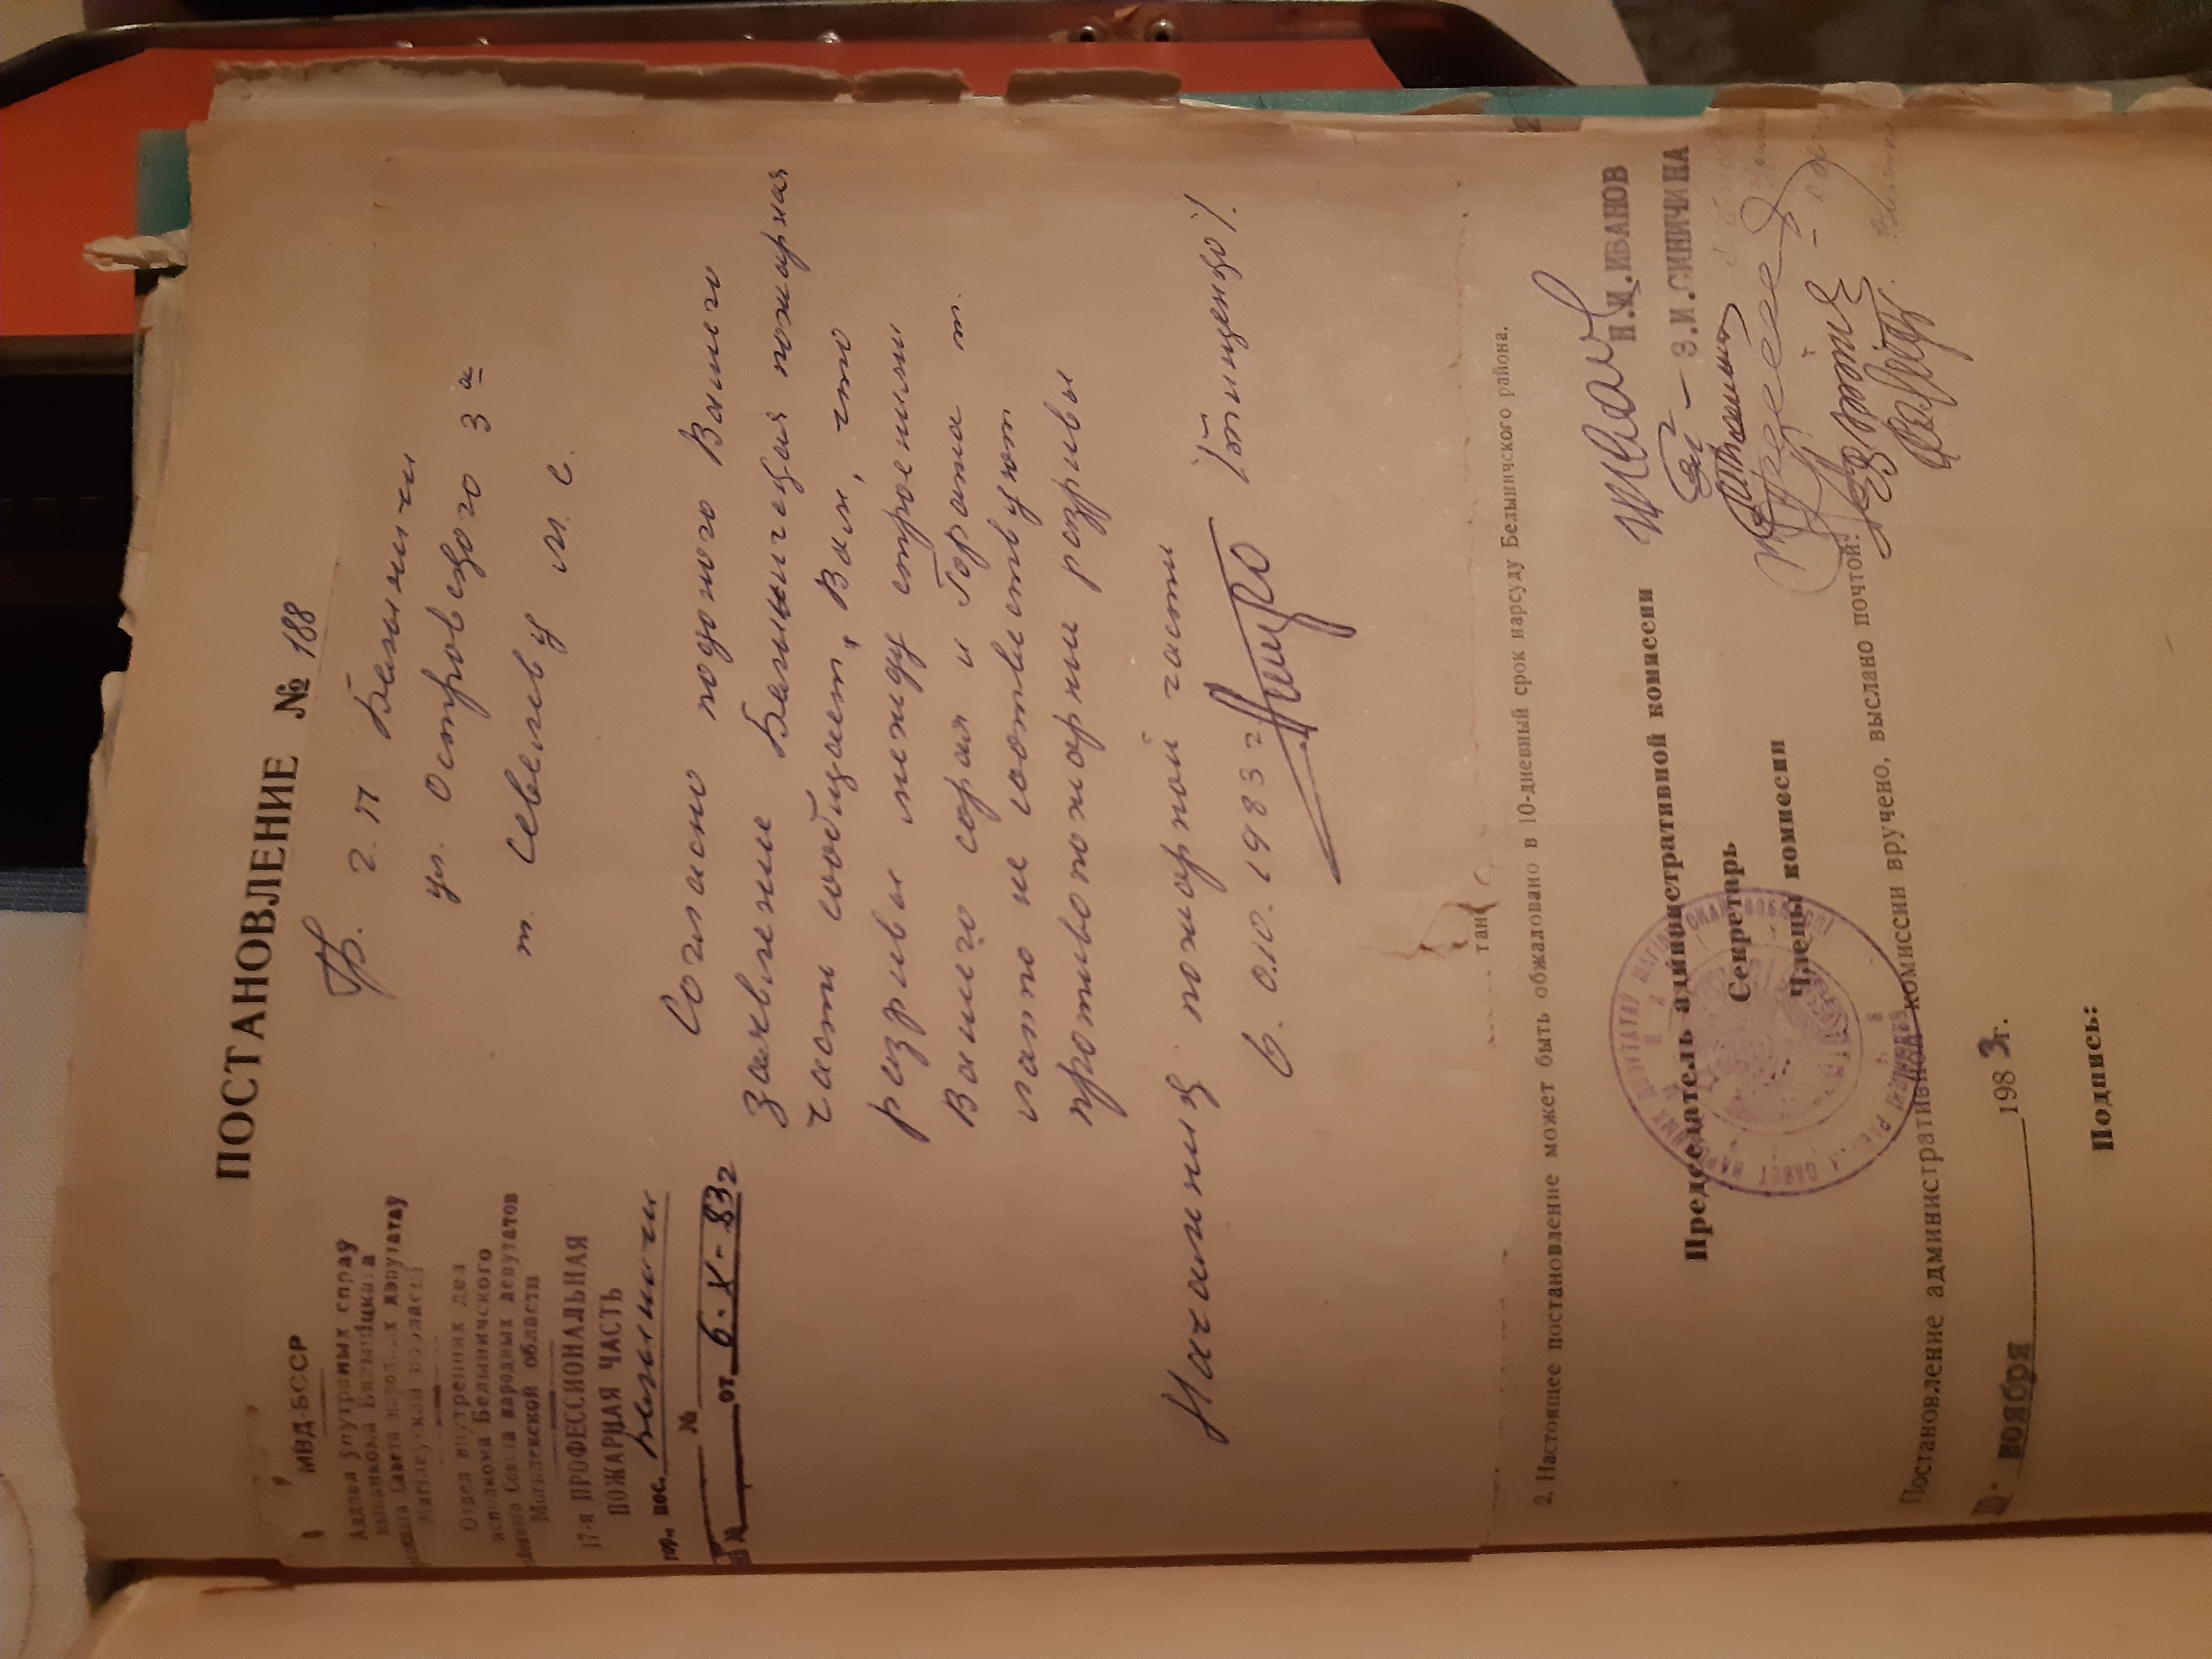 ПОСТАНОВЛЕНИЕ № 188
МВД-БССР
Аддзел ўнутраных спраў
выканкома Бялыніцкага
Савета народных дэпутатаў
Магілеўская вобласць
Отдел внутренних дел
исполкома Белыничского
Совета народных депутатов
Могилевской области
17-я ПРОФЕССИОНАЛЬНАЯ
ПОЖАРНАЯ ЧАСТЬ
гор. пос. Белыничи
№
На № от 6-X-83г
Гр. г.п Белыничи
ул. Островского 3а
т. Севелеву М. С.
Согласно поданого Вашего
заявление Белыничская пожарная
часть сообщает, Вам, что
разрывы между строениями
Вашего сарая и Гората т.
лато не соотвествуют
противопожарны разрывы
Начальник пожарной части
6. 0.10. 1983г /Тищенко/.
2. Настоящее постановление может быть обжаловано в 10-дневный срок нарсуду Белыничского района.
Председатель административной комиссии Н.И.ИВАНОВ
Секретарь — З.И.СИНИЧИНА
Члены комиссии
Постановление административной комиссии вручено, выслано почтой:
ноября 1983г.
Подпись: